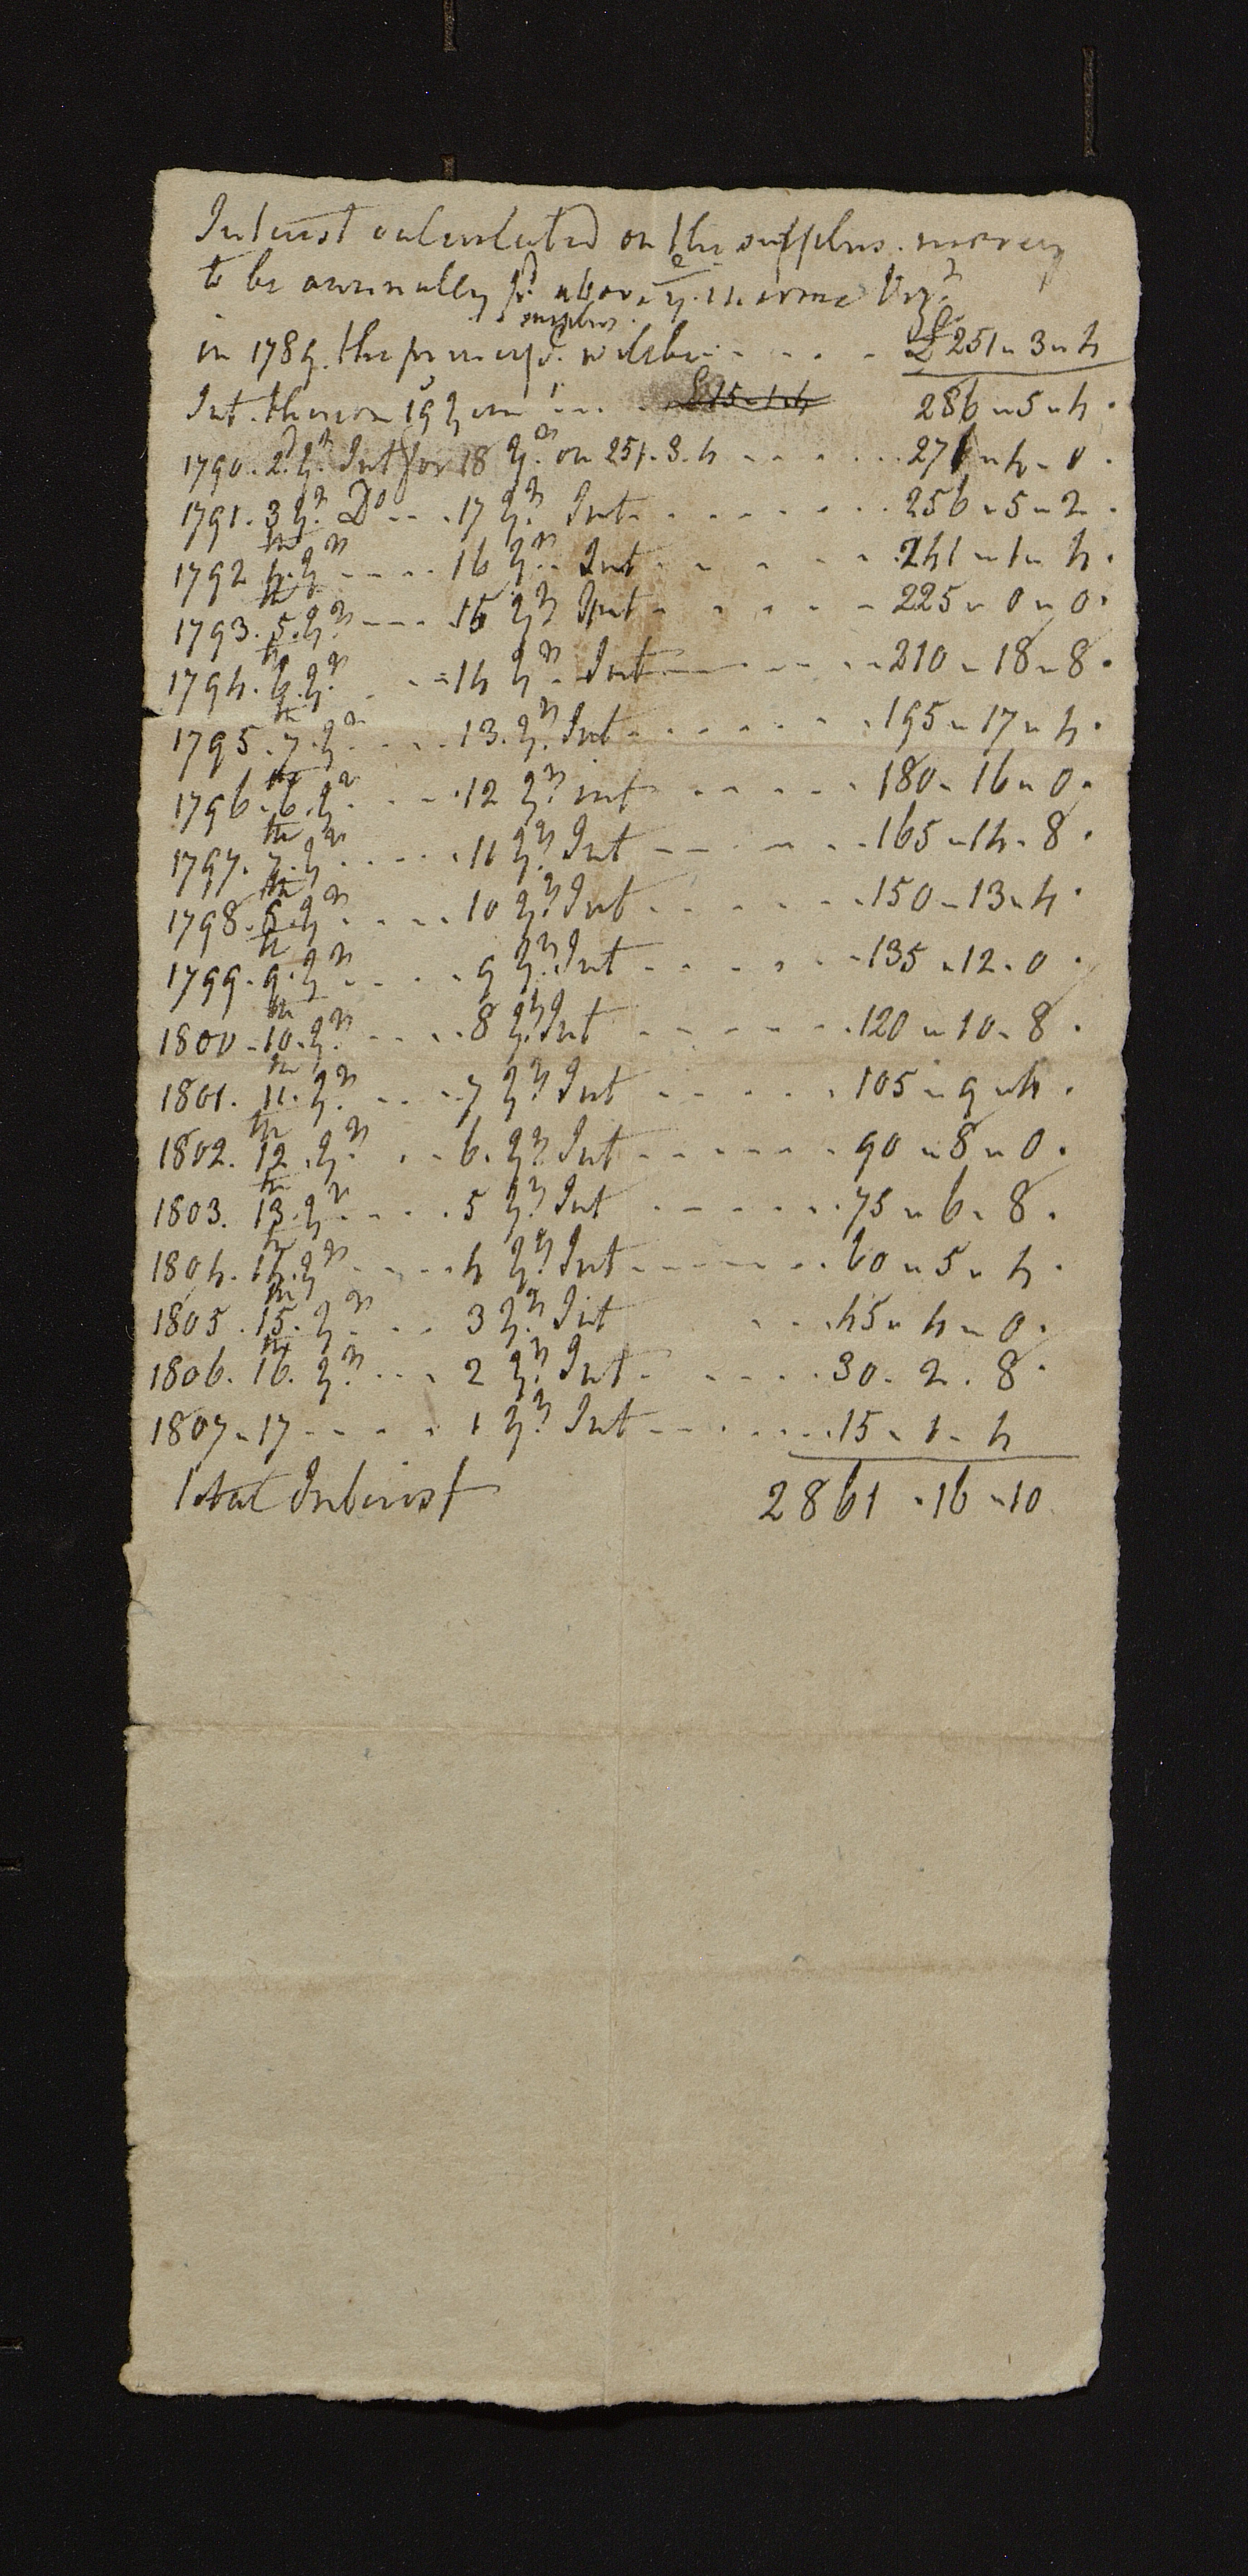 Interest calculated on the surplus money
to be annually pd. above ye. income Vizt
surplus
in 1789. the princip. wilbe . . . . £251 " 3 " 4
Int. thereon 19 year . . . £15 " 1 " 4 286 " 5 " 4 .
1790 . 2d. yr. Int for 18 yrs. on 251 . 3 . 4 . . . . . 271 " 4 " 0 .
1791 . 3 yr. Do . . . 17 yrs. Int . . . . . . . . 256 " 5 " 2 .
1792 4th. yr . . . . . 16 yrs. Int . . . . . 241 " 1 " 4 .
1793 . 5th. yr. . . . 15 yrs Int . . . . . 225 " 0 " 0 .
1794 . 6th. yr. . . . 14 yrs. Int . . . . 210 " 18 " 8 .
1795 . 7th. yr . . . . 13 . yrs. Int . . . . . . 195 " 17 " 4 .
1796 . 6th. yr . . . . 12 yrs. int . . . . . 180 " 16 " 0 .
1797 . 7th. yr . . . . . 11 yrs. Int . . . . . 165 " 14 . 8 .
1798 . 8th. yr . . . . 10 yrs. Int . . . . . . 150 " 13 " 4 .
1799 . 9th. yr . . . . 9 yrs. Int . . . . . 135 " 12 . 0 .
1800 . 10th. yr. . . . 8 yrs. Int . . . . . 120 " 10 " 8 .
1801 . 11th. yr. . . . 7 yrs. Int . . . . . 105 " 9 " 4 .
1802 . 12th. yr. . . 6 . yrs. Int . . . . . 90 " 8 " 0 .
1803 . 13th. yr . . . . 5 yrs. Int . . . . . . 75 " 6 " 8 .
1804 . 14th. yr . . . . 4 yrs. Int . . . . . . 60 " 5 " 4 .
1805 . 15th. yr . . . 3 yrs. Int . . . 45 " 4 " 0 .
1806 . 16th. yr. . . . 2 yrs. Int . . . . . 30 . 2 . 8 .
1807 " 17 . . . . . 1 yrs. Int . . . . . . 15 " 1 " 4
Total Interest 2861 " 16 " 10